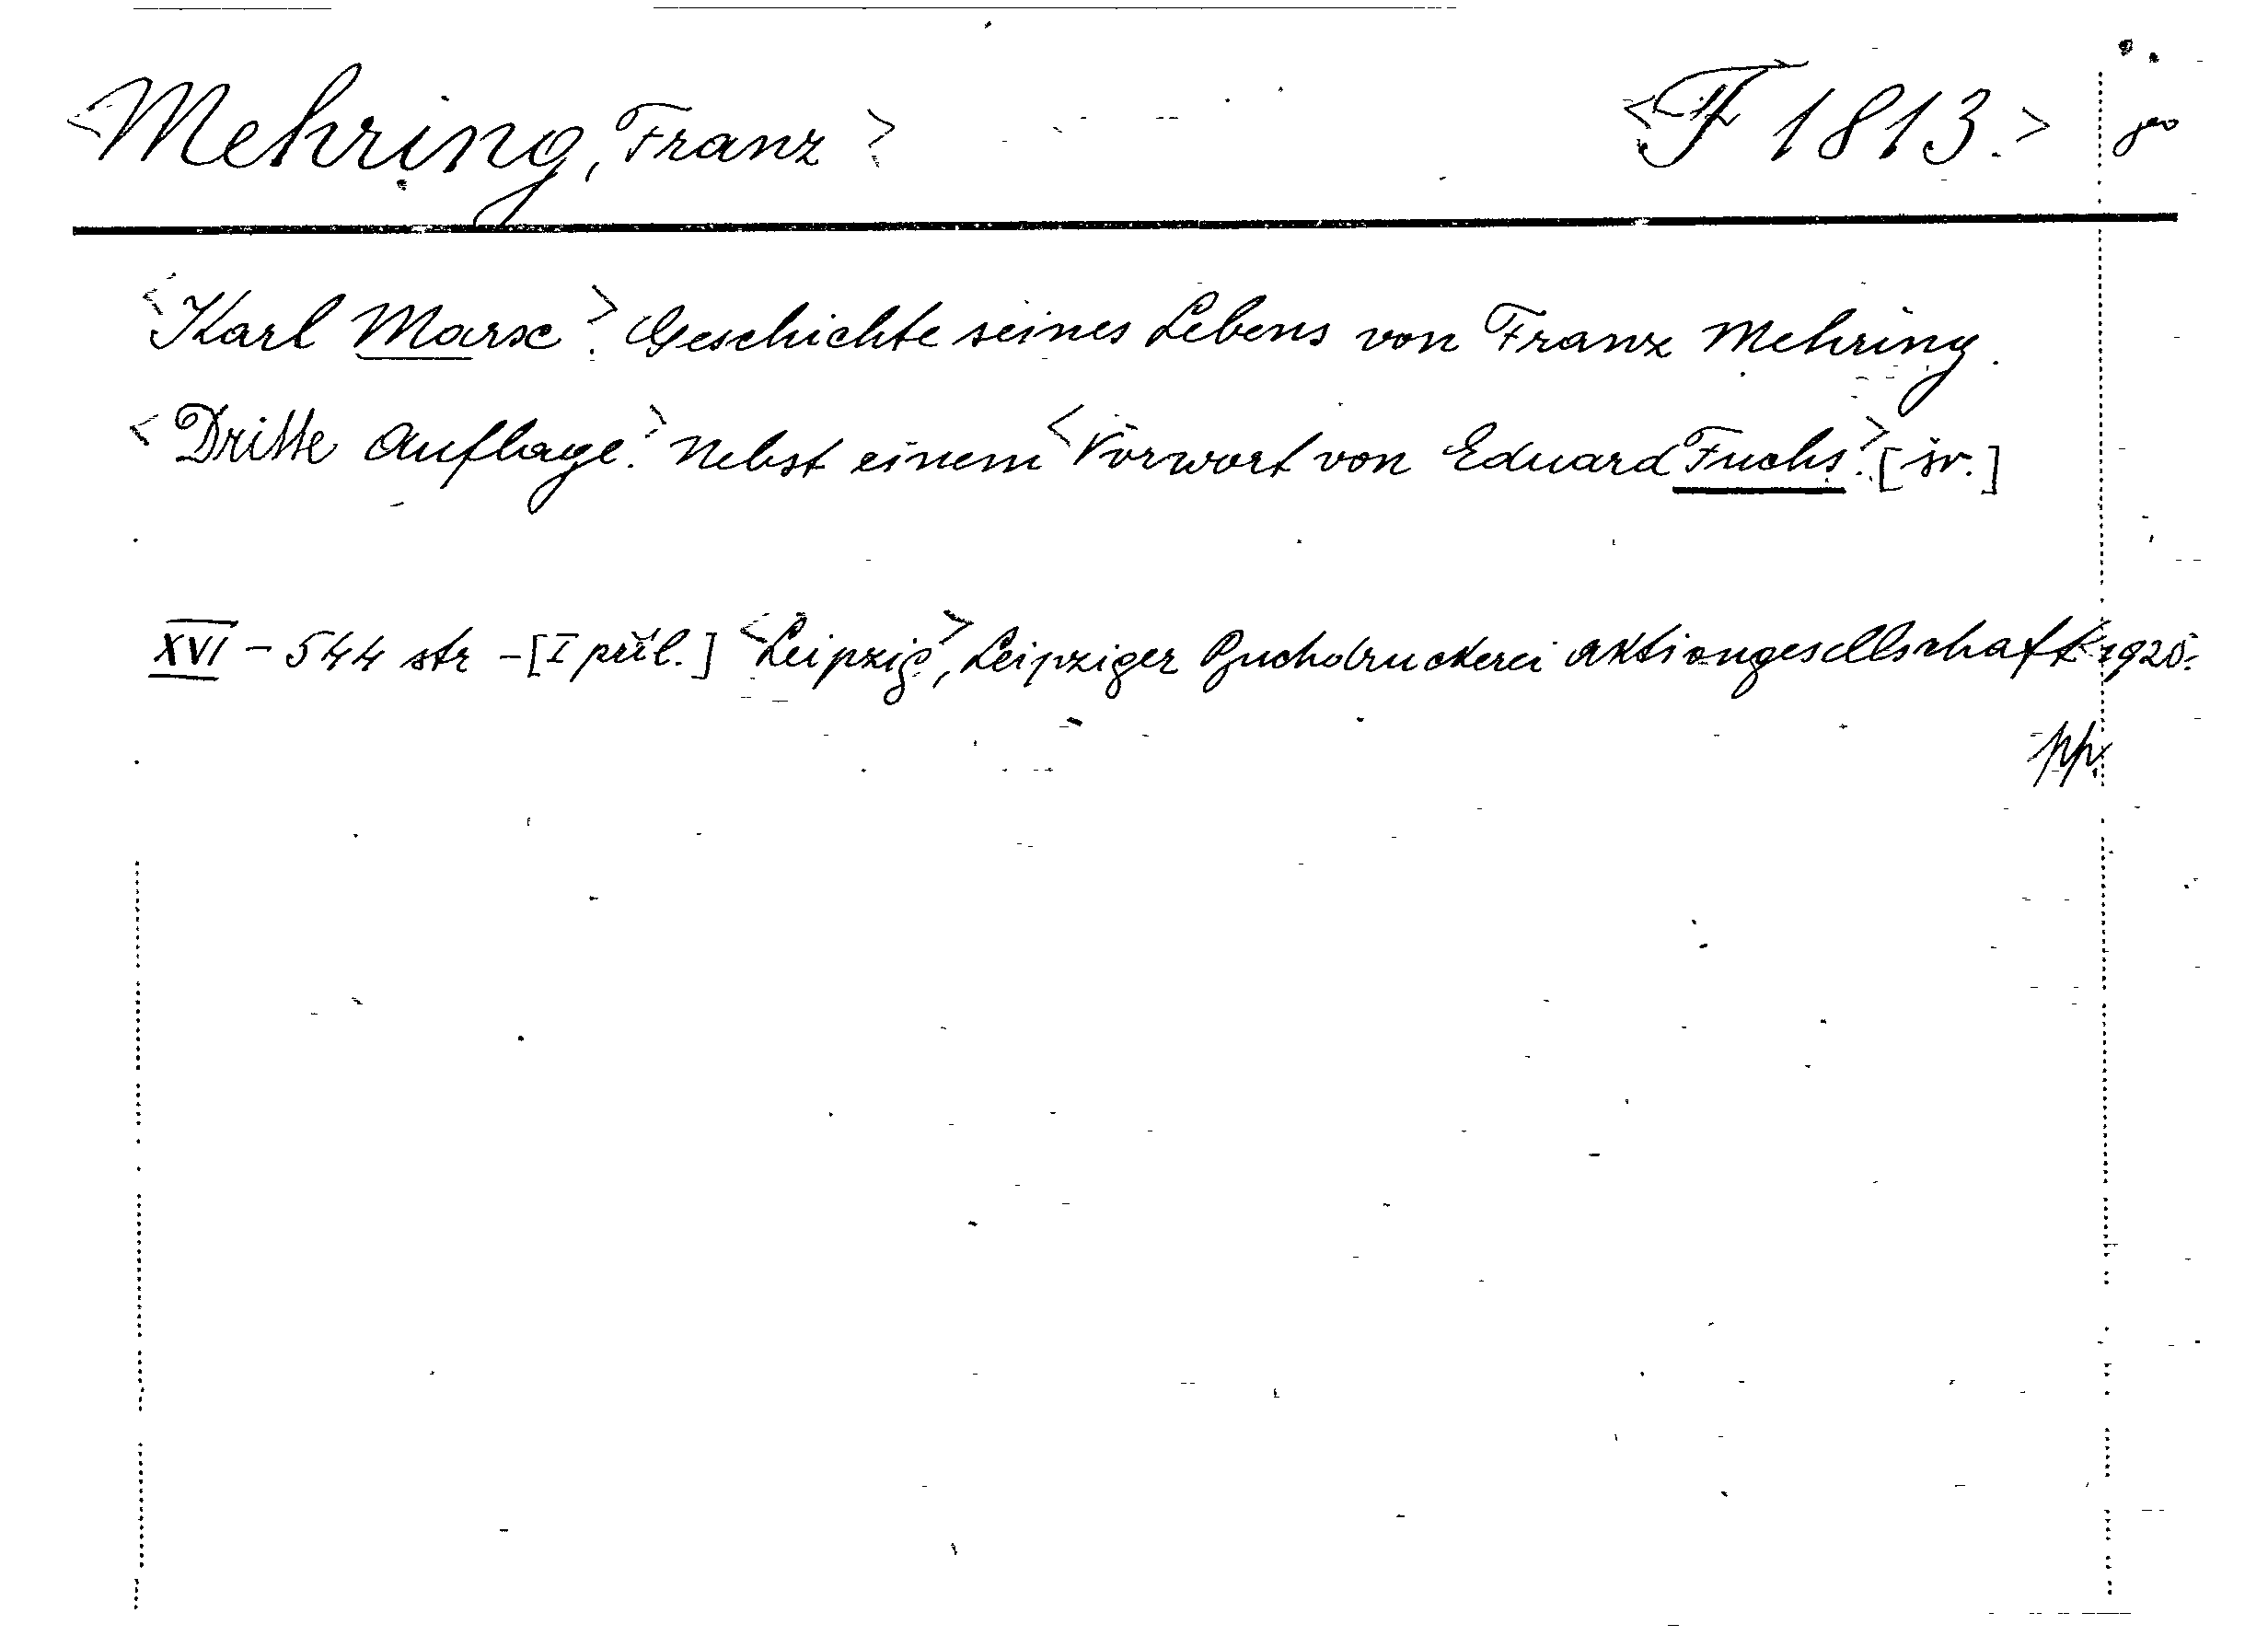 <Mehring, Franz> <F 1813.>
<Karl Marx>. Geschichte seines Lebens von Franz Mehring.
<Dritte Auflage>. Nebst einem <Vorwort von Eduard Fuchs>. [sv.]
XVI - 544 str - [I příl.] <Leipzig>, Leipziger Buchdruckerei Aktiengesellschaft <1920.